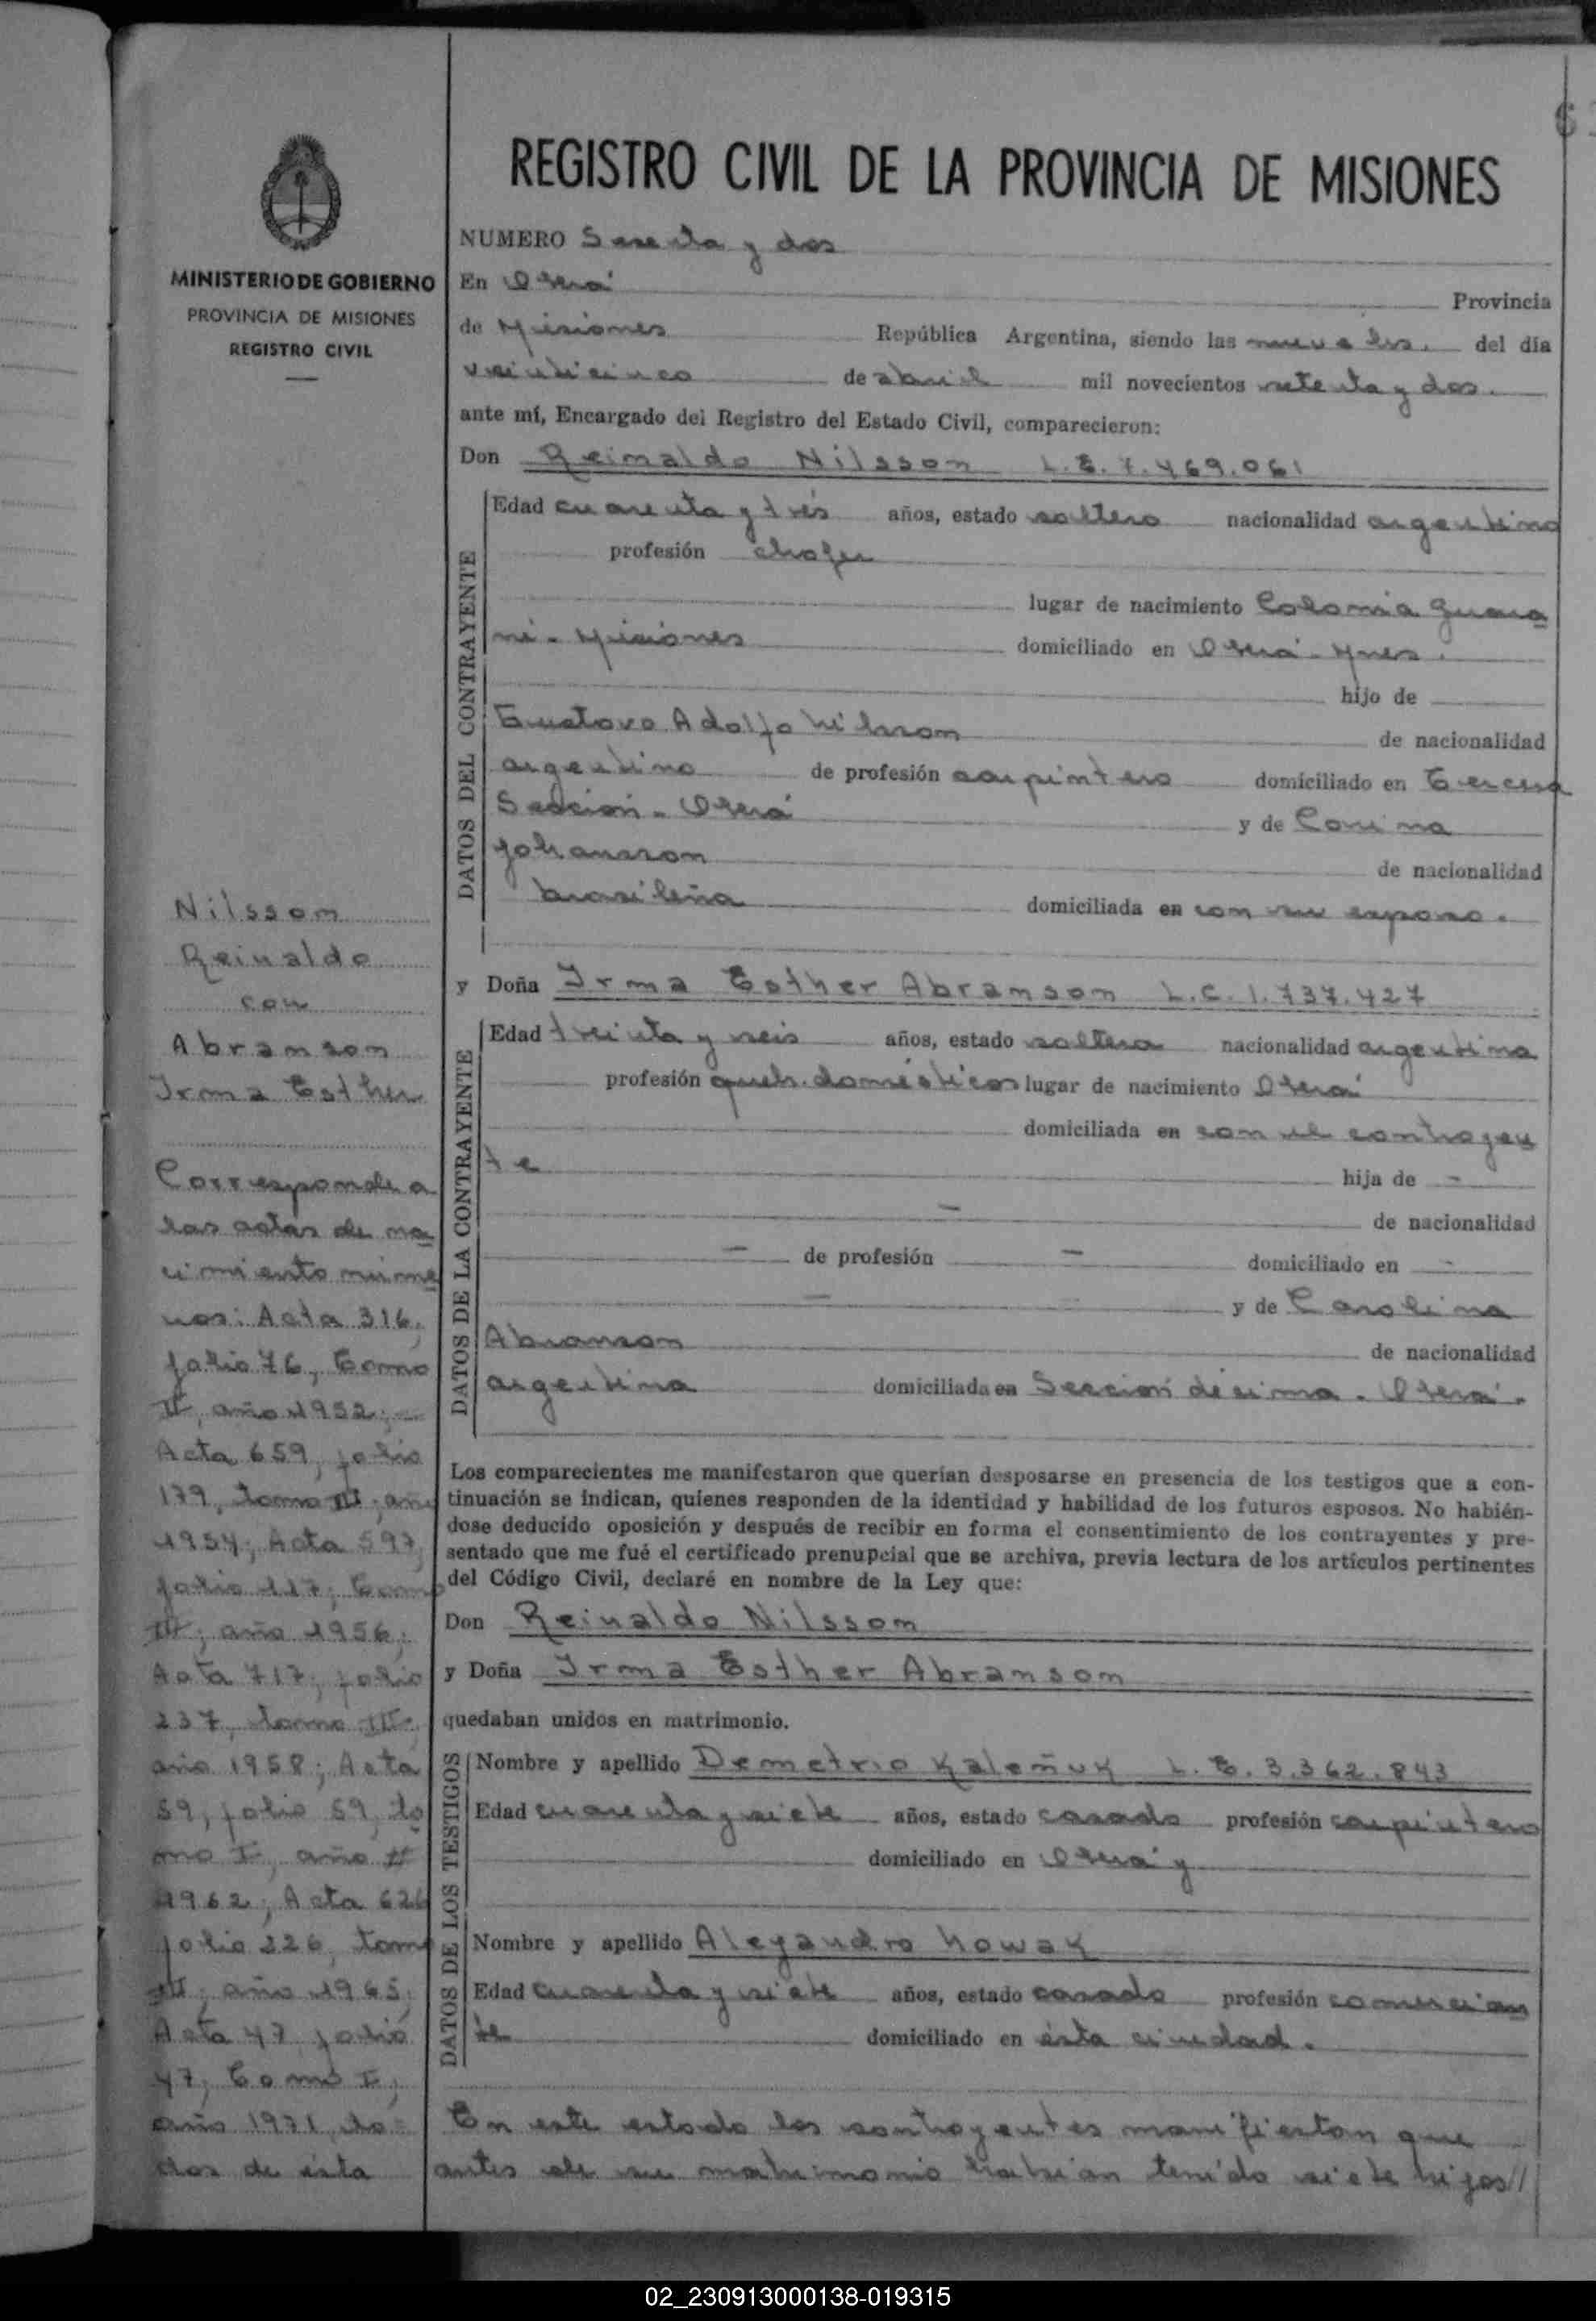 REGISTRO CIVIL DE LA PROVINCIA DE MISIONES
MINISTERIO DE GOBIERNO
PROVINCIA DE MISIONES
REGISTRO CIVIL
NUMERO Sesenta y dos
En Oberá Provincia
de Misiones República Argentina, siendo las nueve hs. del día
veinticinco de abril mil novecientos setenta y dos.
ante mí, Encargado del Registro del Estado Civil, comparecieron:
Don Reinaldo Nilsson L.E. 7.469.061
DATOS DEL CONTRAYENTE
Edad cuarenta y trés años, estado soltero nacionalidad argentino
profesión chofer
lugar de nacimiento Colonia Guara
ní - Misiones domiciliado en Oberá - Mnes.
hijo de
Gustavo Adolfo Nilsson de nacionalidad
argentino de profesión carpintero domiciliado en Tercera
Sección - Oberá y de
Johansson de nacionalidad
brasileña domiciliada en con su esposo.
y Doña Irma Esther Abranson L.C. 1.737.427
DATOS DE LA CONTRAYENTE
Edad treinta y seis años, estado soltera nacionalidad argentina
profesión queh. domésticos lugar de nacimiento Oberá
domiciliada en con el contrayen
te hija de -
- de nacionalidad
- de profesión - domiciliado en -
- y de Carolina
Abranson de nacionalidad
argentina domiciliada en Sección décima - Oberá.
Los comparecientes me manifestaron que querían desposarse en presencia de los testigos que a con-
tinuación se indican, quienes responden de la identidad y habilidad de los futuros esposos. No habién-
dose deducido oposición y después de recibir en forma el consentimiento de los contrayentes y pre-
sentado que me fué el certificado prenupcial que se archiva, previa lectura de los artículos pertinentes
del Código Civil, declaré en nombre de la Ley que:
Don Reinaldo Nilsson
y Doña Irma Esther Abranson
quedaban unidos en matrimonio.
DATOS DE LOS TESTIGOS
Nombre y apellido Demetrio Kaleñuk L.E. 3.362.843
Edad cuarenta y siete años, estado casado profesión carpintero
domiciliado en Oberá y
Nombre y apellido Aleyandro Nowak
Edad cuarenta y siete años, estado casado profesión comercian
te domiciliado en ésta ciudad.
En este estado los contrayentes manifiestan que
antes de su matrimonio habían tenido siete hijos//
Nilsson
Reinaldo
con
Abranson
Irma Esther
Corresponde a
las actas de na
cimiento núme
ros: Acta 316,
folio 76, Tomo
II, año 1952;
Acta 659, folio
179, tomo III, año
1954; Acta 597,
folio 117; Tomo
III; año 1956;
Acta 717; folio
237, tomo III,
año 1958; Acta
59, folio 59, to
mo I, año
1962; Acta 626
folio 226, tomo
III; año 1965;
Acta 47 folio
47; Tomo I;
año 1971, to=
dos de ésta
02_230913000138-019315